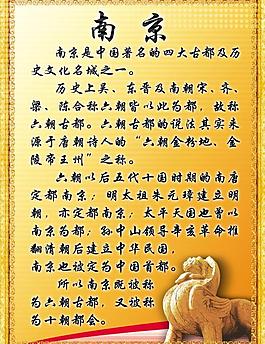 南京
南京是中国著名的四大古都及历
史文化名城之一。
历史上吴、东晋及南朝宋、齐、
梁、陈合称六朝皆以此为都，故称
六朝古都。六朝古都的说法其实来
源于唐朝诗人的“六朝金粉地、金
陵帝王州”之称。
六朝以后五代十国时期的南唐
定都南京；明太祖朱元璋建立明
朝，亦定都南京；太平天国也曾以
南京为都；孙中山领导辛亥革命推
翻清朝后建立中华民国，
南京也被定为中国首都。
所以南京既被称
为六朝古都，又被称
为十朝都会。